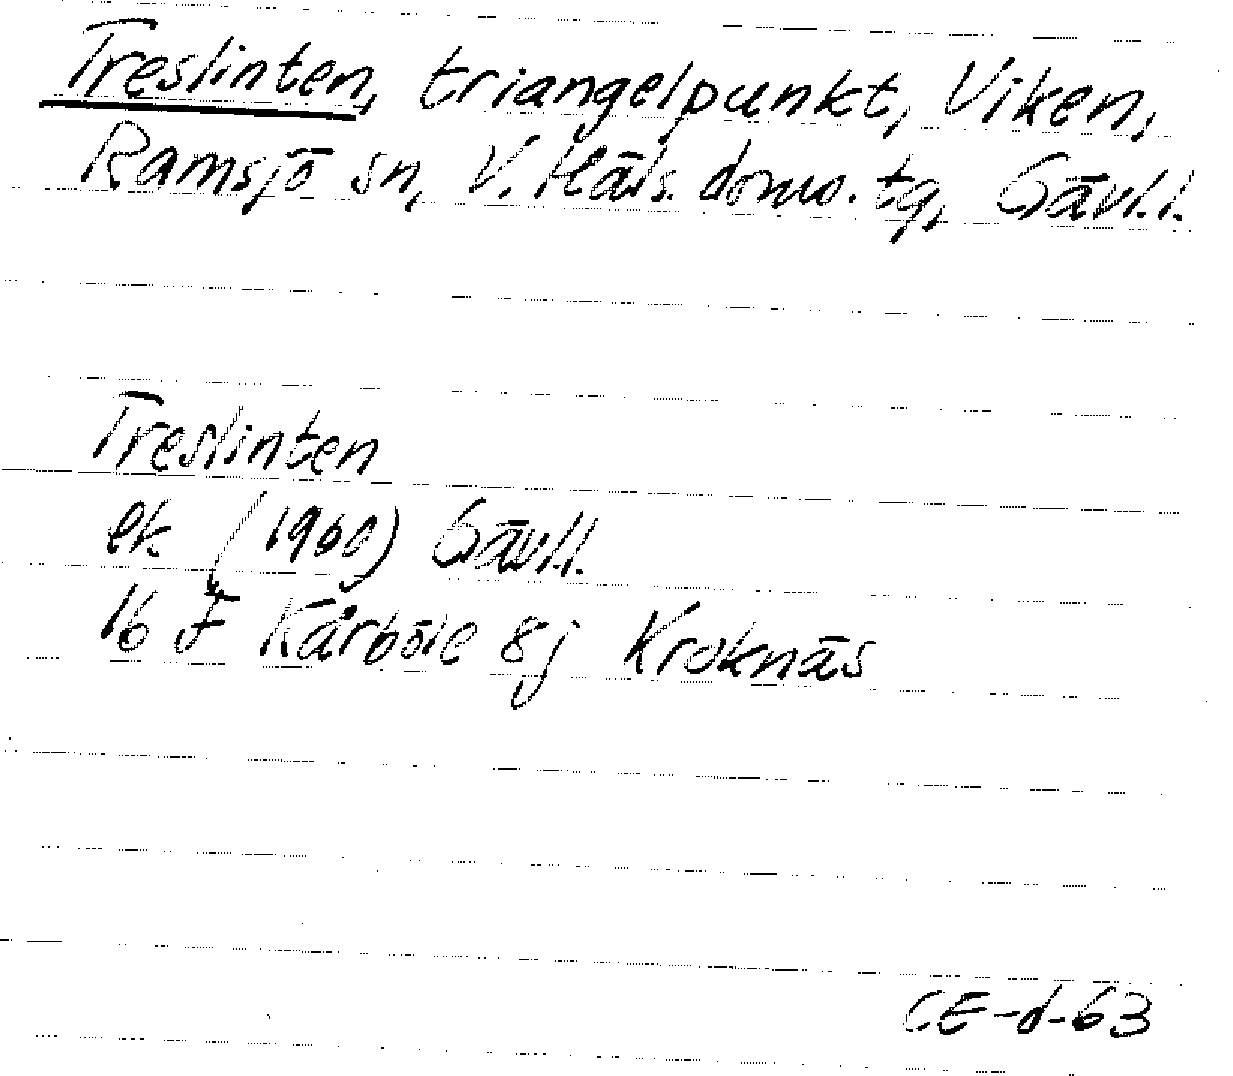 Treslinten, triangelpunkt, Viken,
Ramsjö sn, V. Häls. doms. tg, Gävl.l.
Treslinten
ek (1960) Gävl.l.
16 F Kårböle 8j Kroknäs
CE-d-63